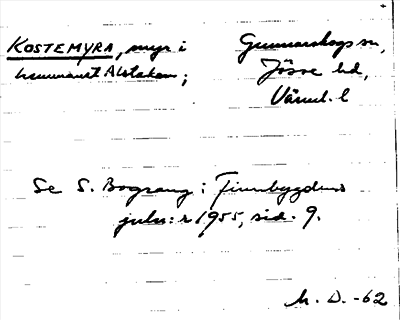 KOSTEMYRA, myr i
Gunnarskogs sn,
hemmanet Alstakan;
Jösse hd,
Värml. l
Se S. Bograng i Finnbygdens
julnr 1955, sid. 9.
M. D. -62